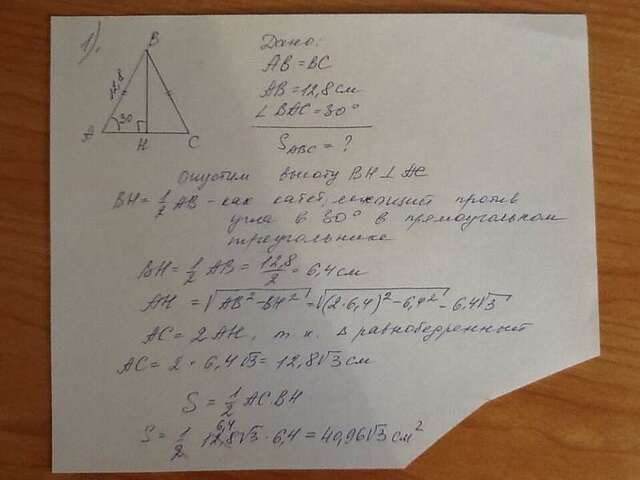 1).
B
12,8
30
A
H
C
Дано:
AB = BC
AB = 12,8 см
∠ BAC = 30°
S ABC = ?
опустим высоту BH ⊥ AC
BH = 1/2 AB - как катет, лежащий против
угла в 30° в прямоугольном
треугольнике
BH = 1/2 AB = 12,8/2 = 6,4 см
AH = √(AB² - BH²) = √((2·6,4)² - 6,4²) = 6,4√3
AC = 2AH, т.к. Δ равнобедренный
AC = 2 · 6,4√3 = 12,8√3 см
S = 1/2 AC·BH
6,4
S = 1/2 12,8√3 · 6,4 = 40,96√3 см²